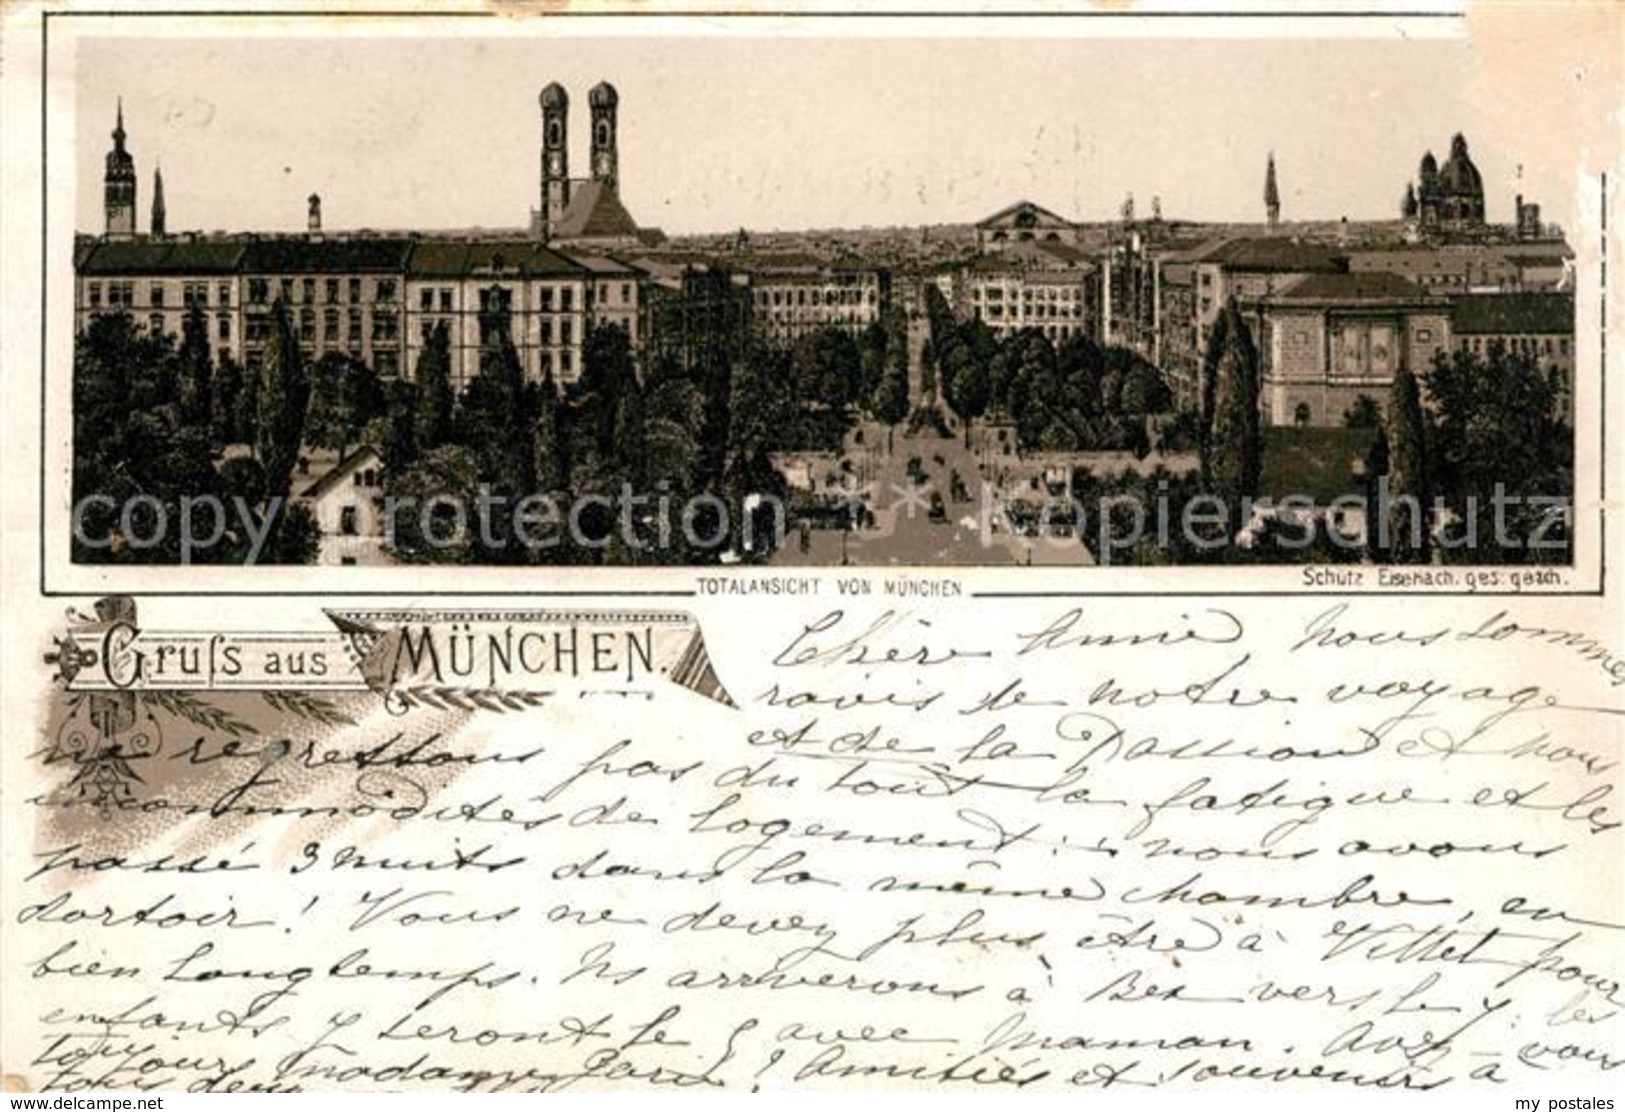 copyprotection ** Kopierschutz
TOTALANSICHT VON MÜNCHEN
Schütz Eisenach. ges: gesch.
Gruſs aus MÜNCHEN.
Chère Amie, nous sommes
ravis de notre voyage
et de la Passion et nous
ne regrettons pas du tout la fatigue et les
incommodités de logement: nous avons
passé 3 nuits dans la même chambre, en
dortoir! Vous ne devez plus être à Villet pour
bien longtemps. Ns arriverons à Bex vers le 4: les
enfants y seront le 5 avec Maman. Avez-vous
toujours Madame ? Amitiés et souvenirs à
tous deux
www.delcampe.net
my postales